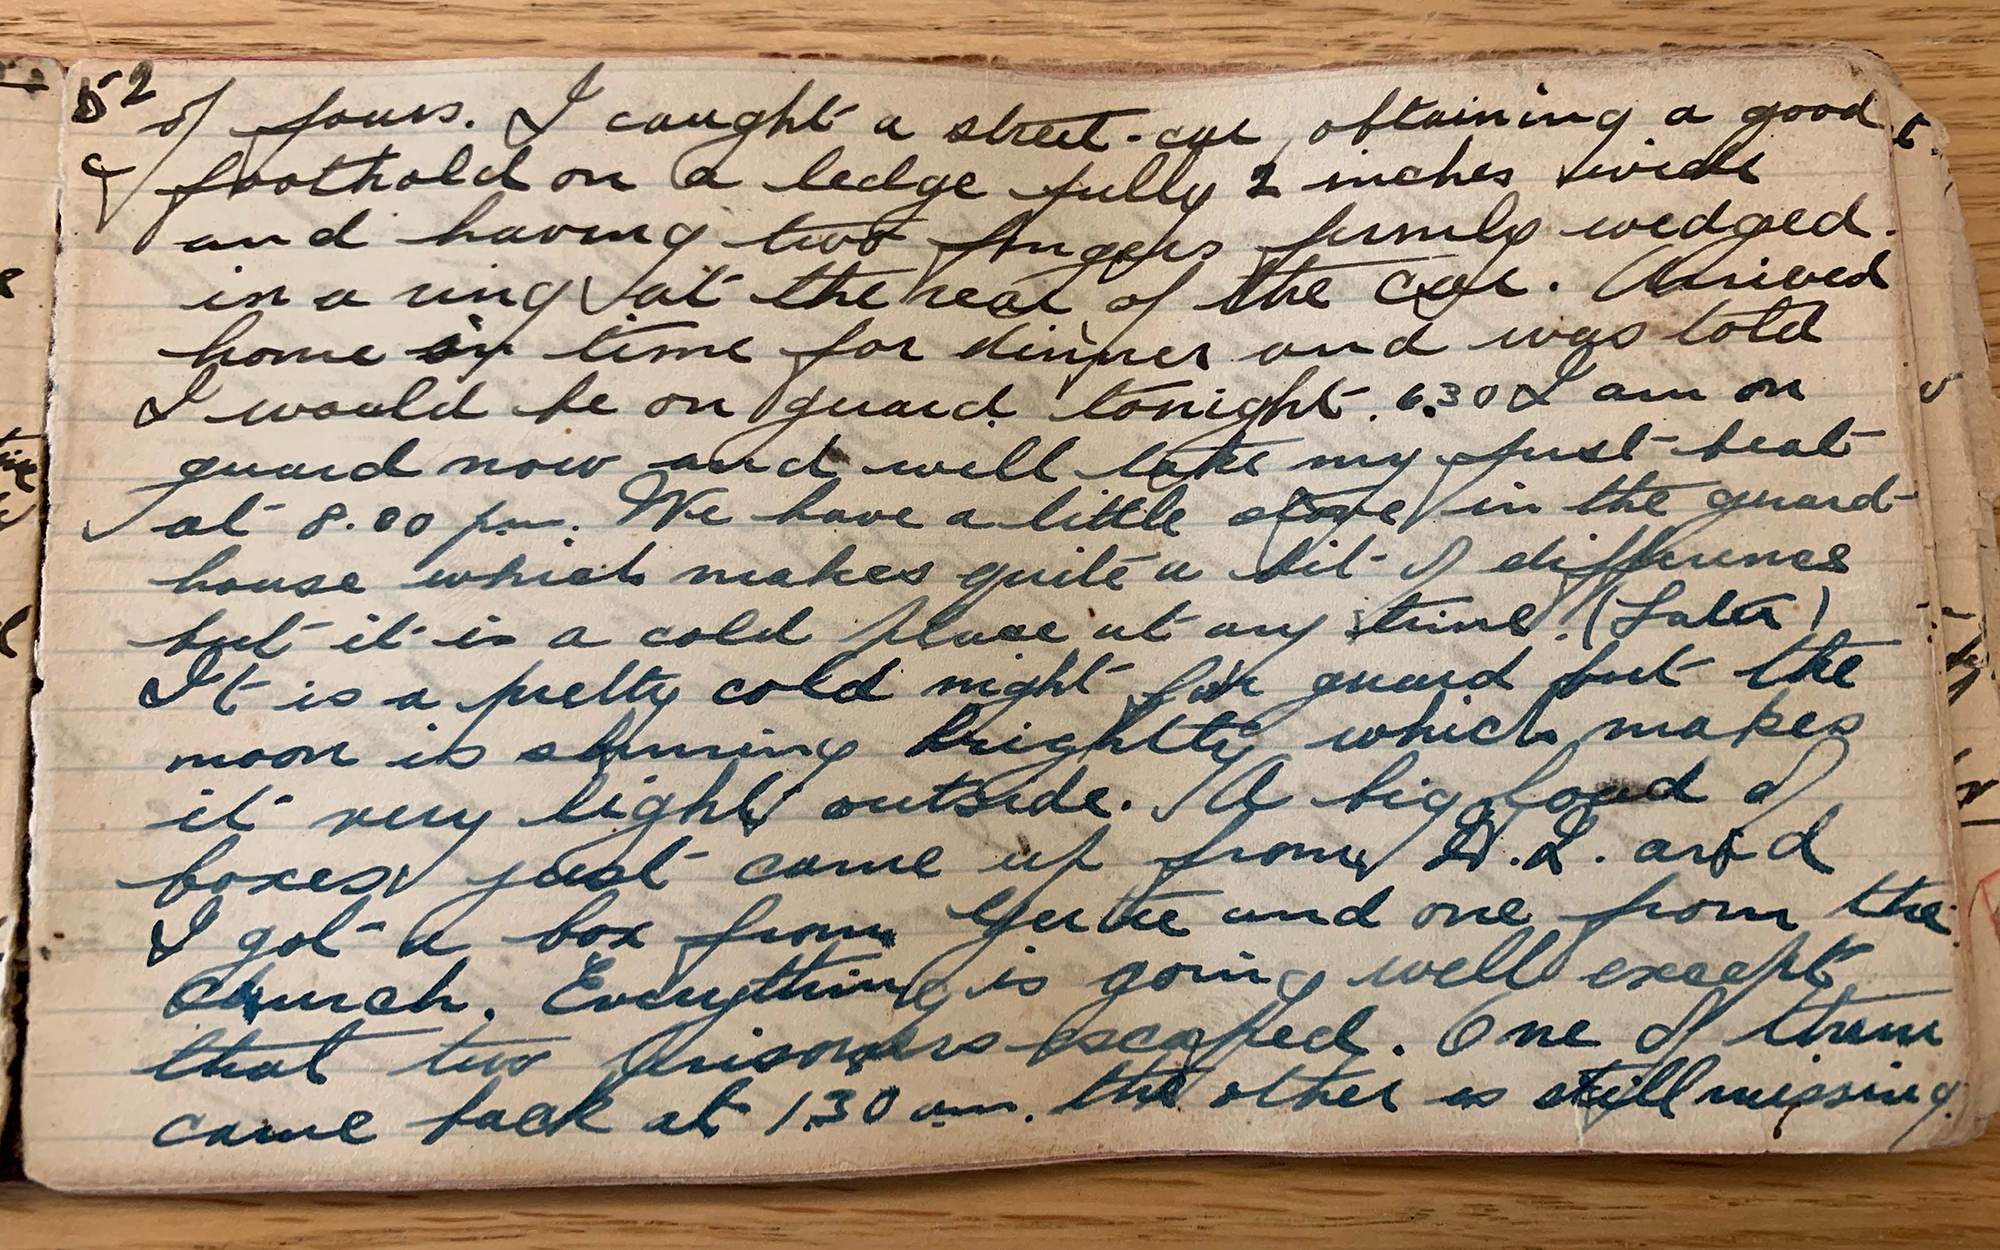 52
of fours. I caught a street-car, obtaining a good
foothold on a ledge fully 2 inches wide
and having two fingers firmly wedged.
in a ring at the rear of the car. Arrived
home in time for dinner and was told
I would be on guard tonight. 6.30 I am on
guard now and will take my first beat
at 8.00 pm. We have a little stove in the guard-
house which makes quite a bit of difference
but it is a cold place at any time. (Later)
It is a pretty cold night for guard but the
moon is shining brightly which makes
it very light outside. A big load of
boxes just came up from and
I got a box from Gertie and one from the
church. Everything is going well except
that two prisoners escaped. One of them
came back at 1.30 am. the other is still missing